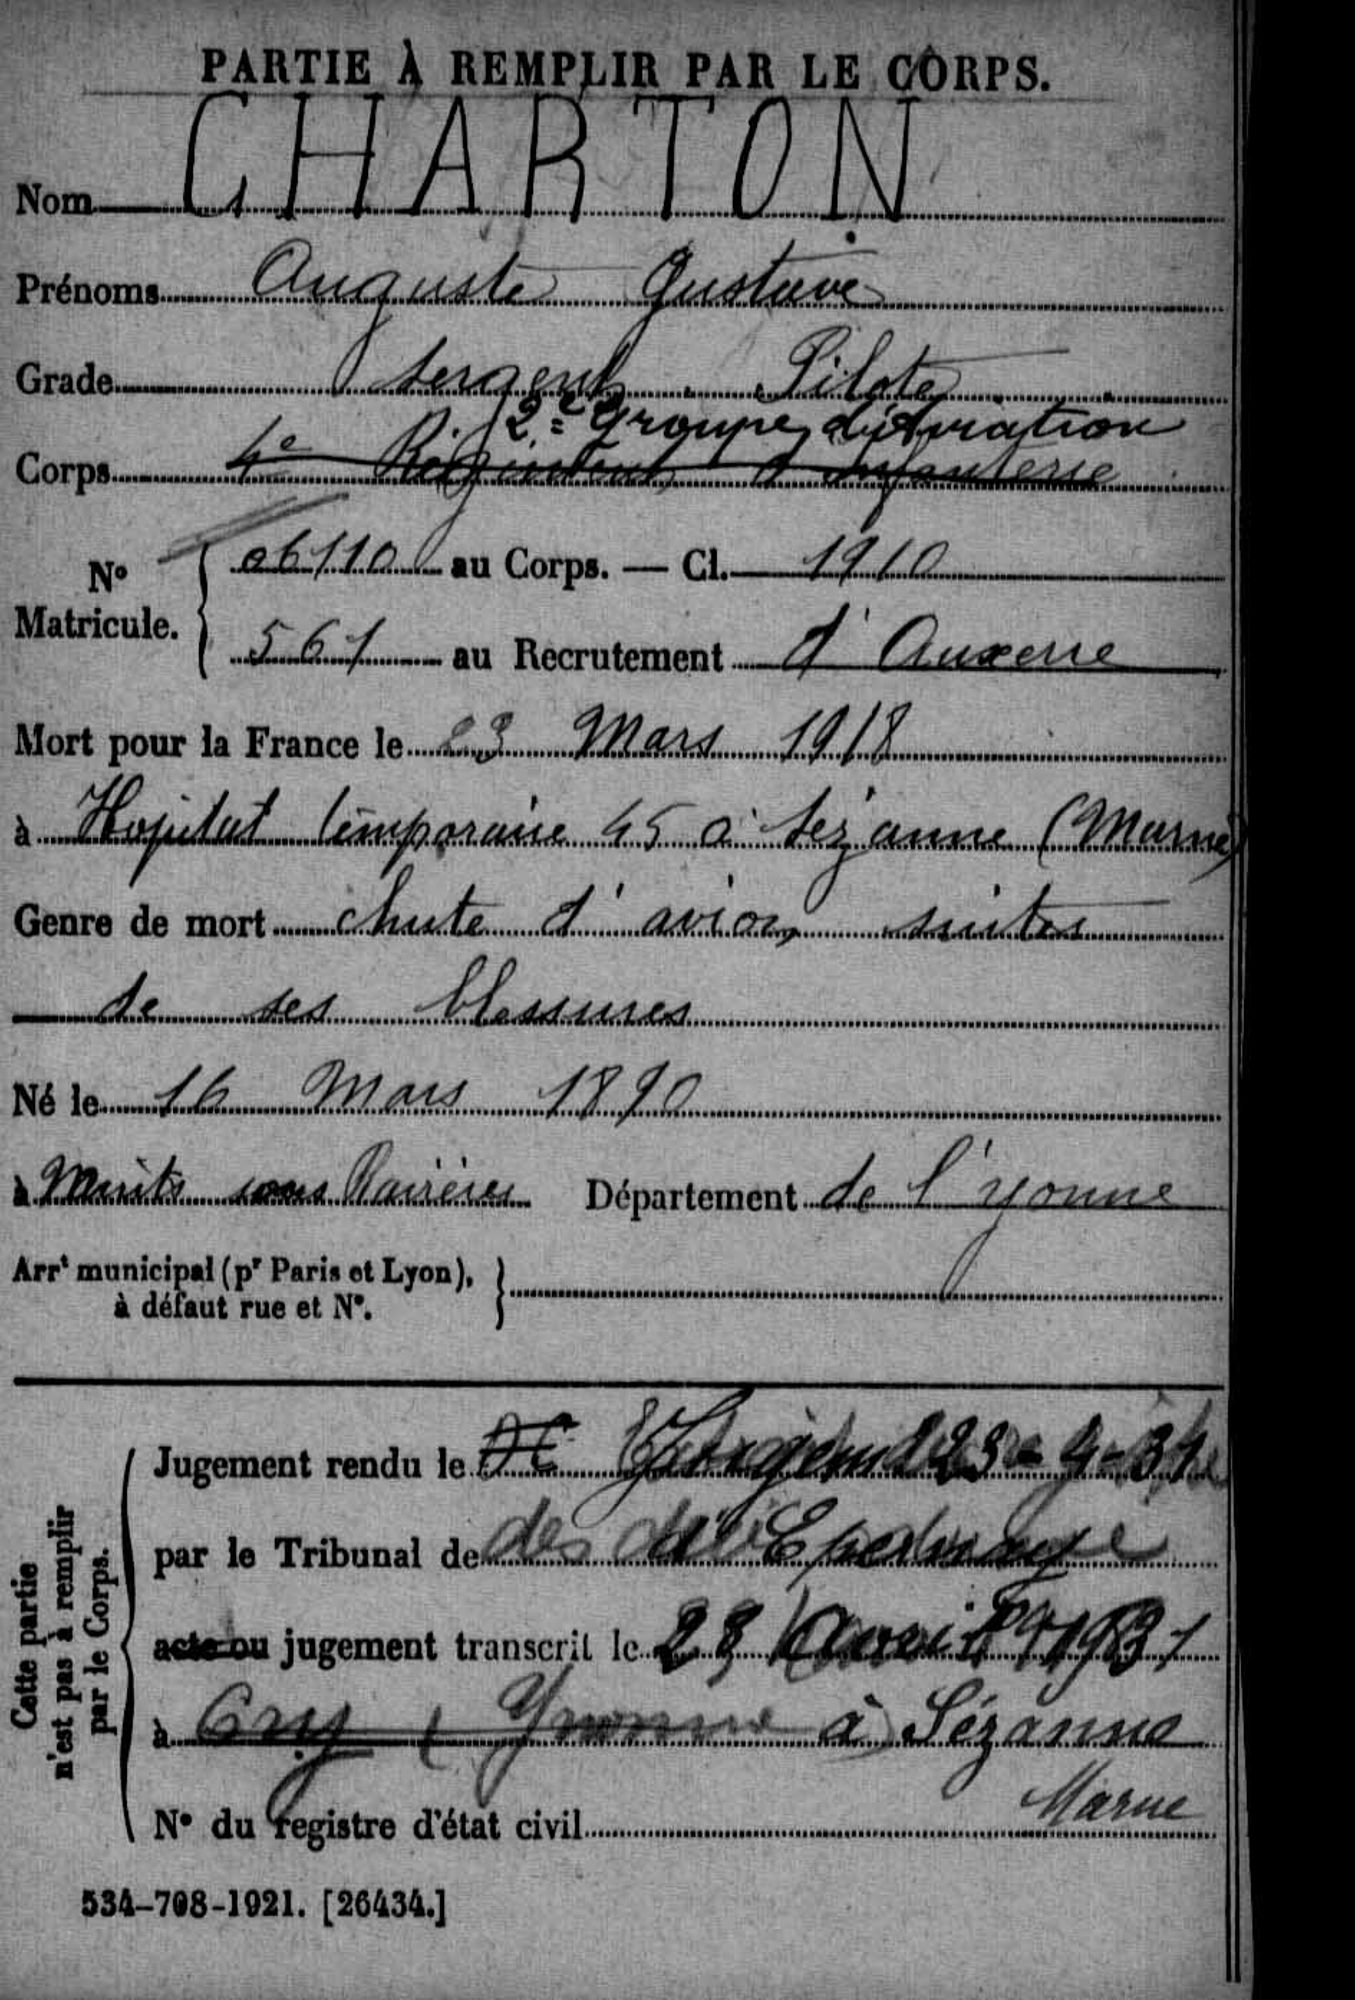 PARTIE À REMPLIR PAR LE CORPS.
Nom CHARTON
Prénoms Auguste Gustave
Grade Sergent Pilote
2e Groupe d'Aviation
Corps 4e Régiment d'infanterie
No Matricule. 06110 au Corps. — Cl. 1910
561 au Recrutement d'Auxerre
Mort pour la France le 23 Mars 1918
à Hopital temporaire 45 à Sézanne (Marne)
Genre de mort chute d'avion, suites
de ses blessures
Né le 16 Mars 1890
à sous Ravières Département de l'Yonne
Arrt municipal (pr Paris et Lyon), à défaut rue et No.
Cette partie n'est pas à remplir par le Corps.
Jugement rendu le 23-4-31
par le Tribunal de d'Epernay
acte ou jugement transcrit le 28 avril 1931
à Cry Yonne à Sézanne
Marne
No du registre d'état civil
534-708-1921. [26434.]